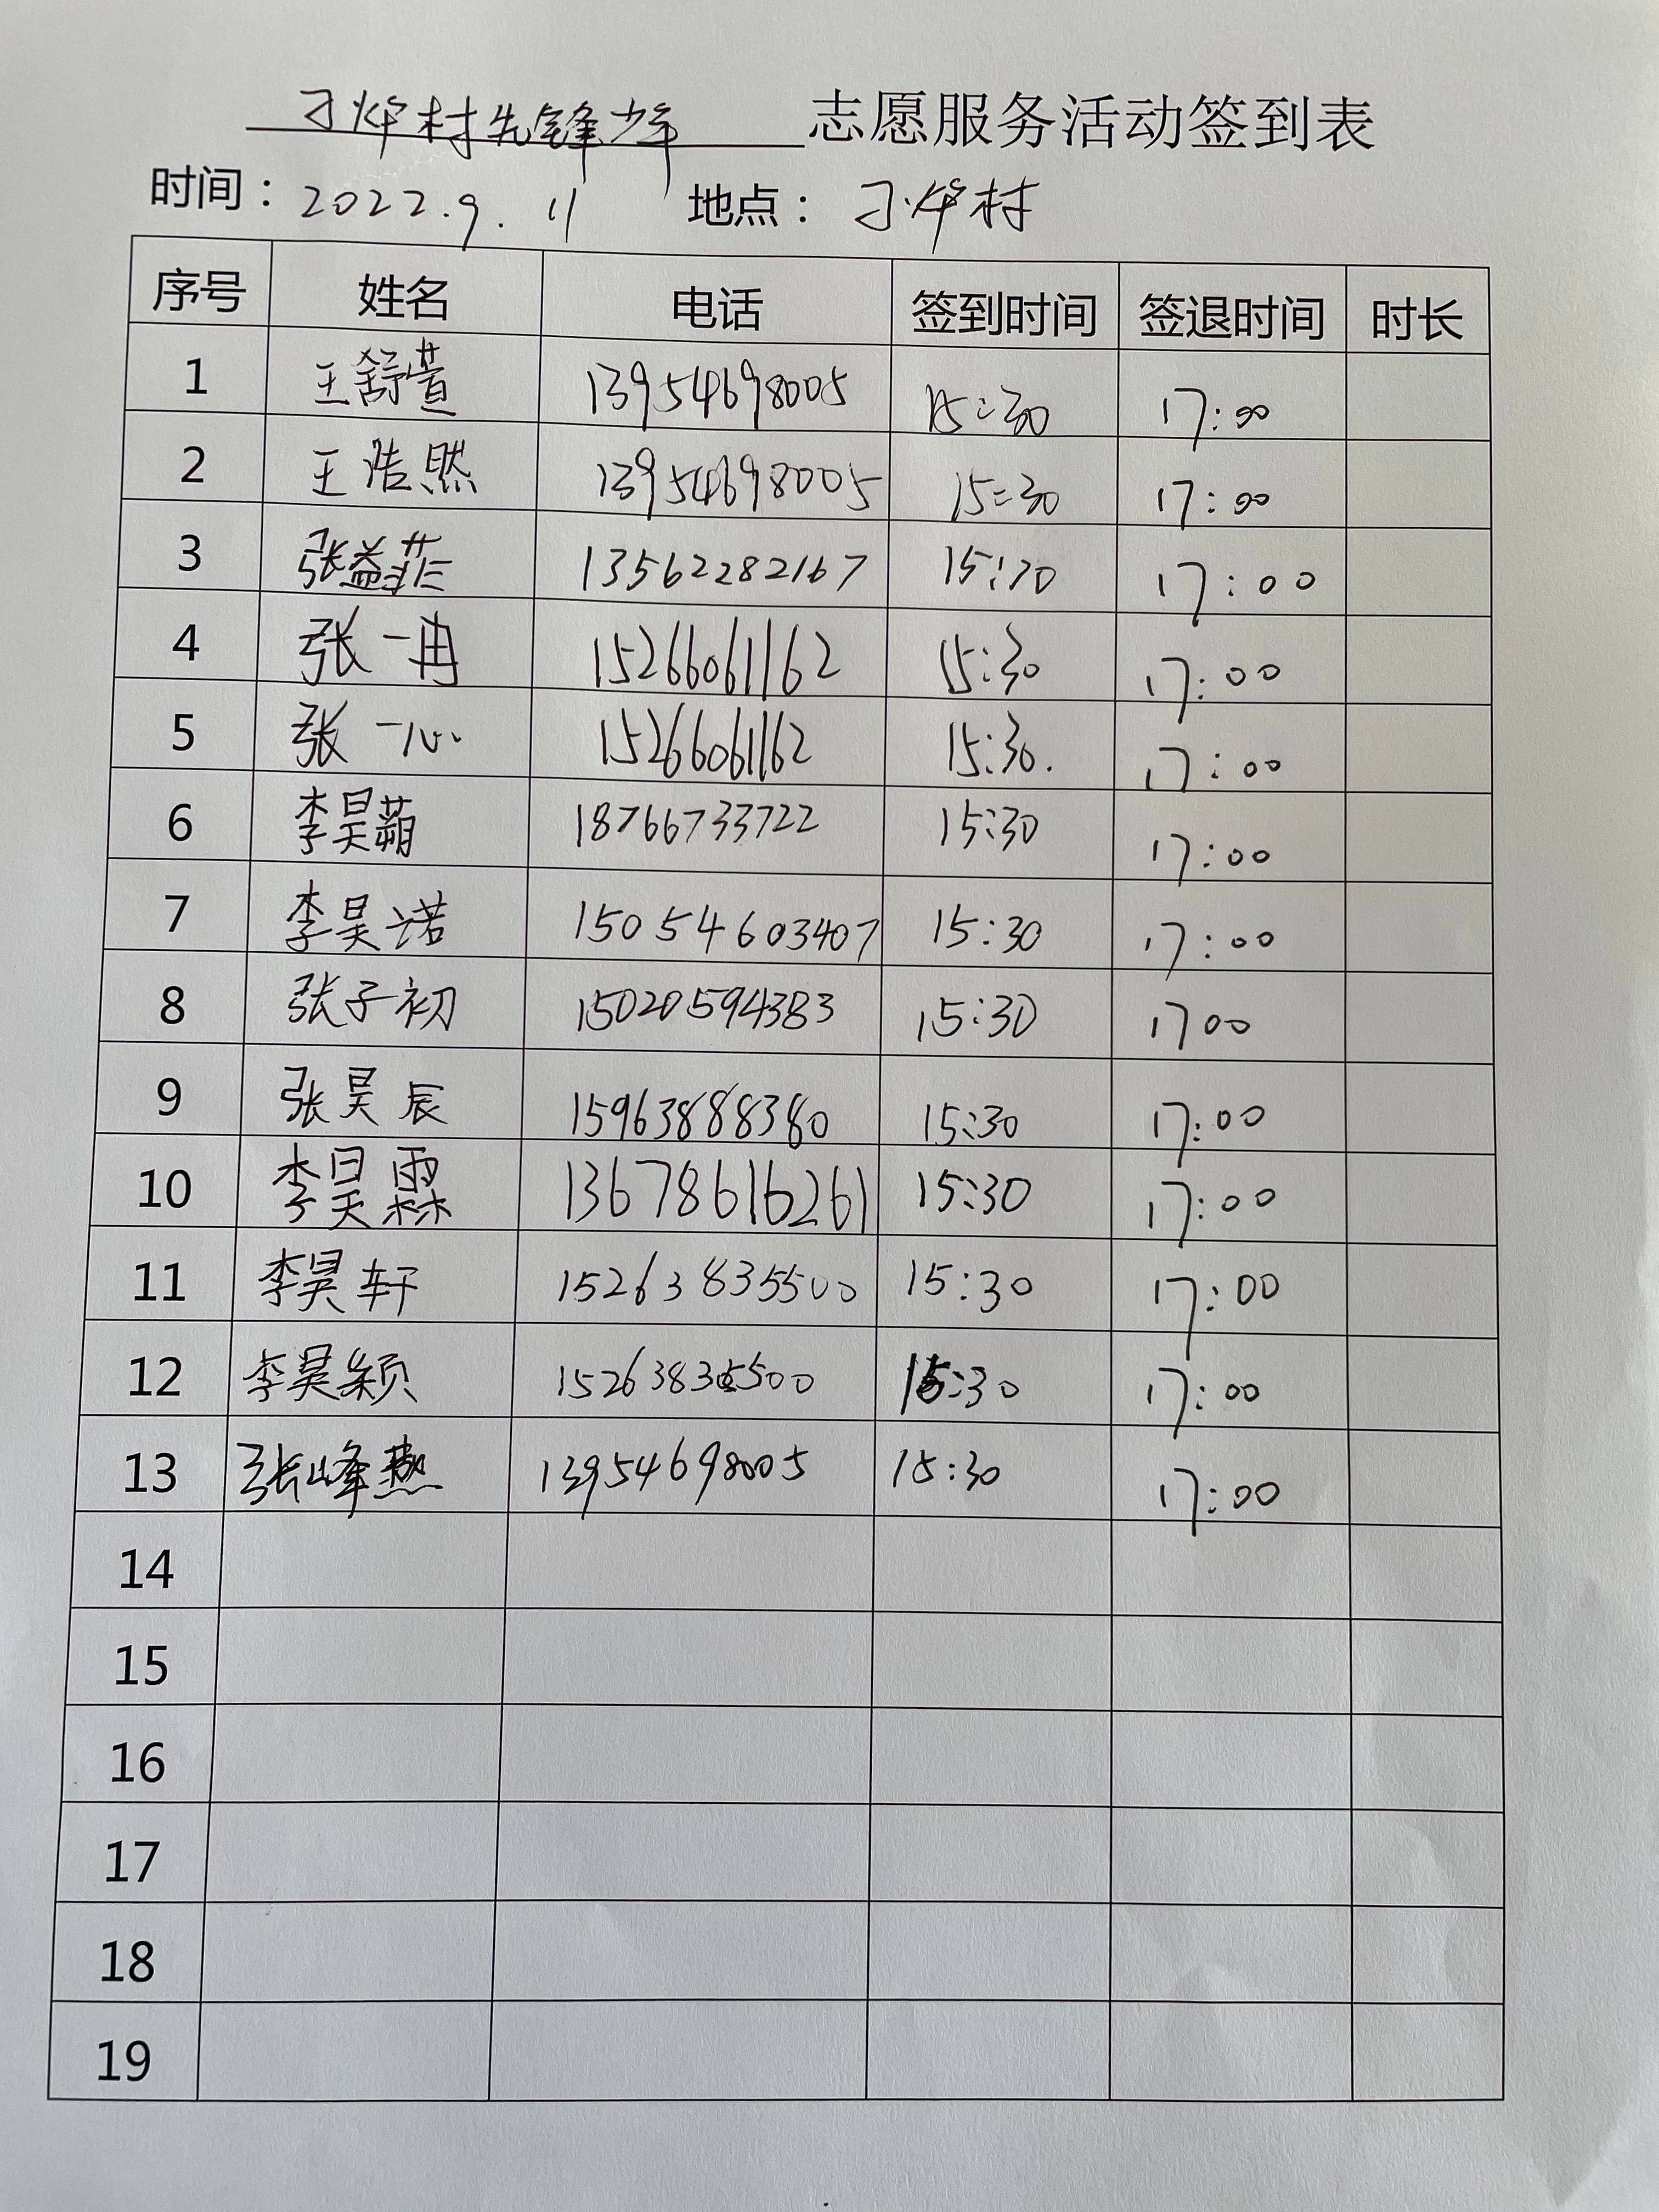 刁烨村先锋少年 志愿服务活动签到表
时间：2022.9.11 地点：刁烨村
序号 姓名 电话 签到时间 签退时间 时长
1 王舒萱 13954698005 15:30 17:00
2 王浩然 13954698005 15:30 17:00
3 张益菲 13562282167 15:30 17:00
4 张一冉 15266061162 15:30 17:00
5 张一心 15266061162 15:30. 17:00
6 李昊蒴 18766733722 15:30 17:00
7 李昊诺 15054603407 15:30 17:00
8 张子初 15020594383 15:30 1700
9 张昊辰 15963888380 15:30 17:00
10 李昊霖 13678616261 15:30 17:00
11 李昊轩 15263835500 15:30 17:00
12 李昊颖 15263835500 15:30 17:00
13 张峰燕 13954698005 15:30 17:00
14
15
16
17
18
19